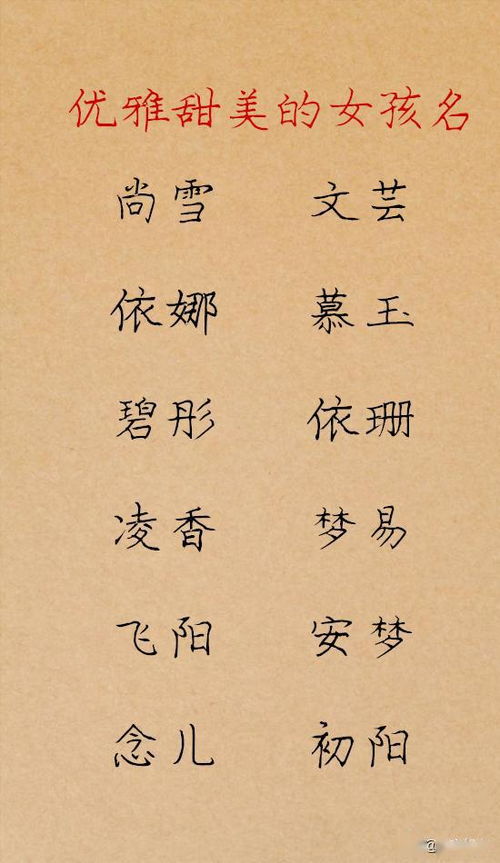 优雅甜美的女孩名
尚雪 文芸
依娜 慕玉
碧彤 依珊
凌香 梦易
飞阳 安梦
念儿 初阳